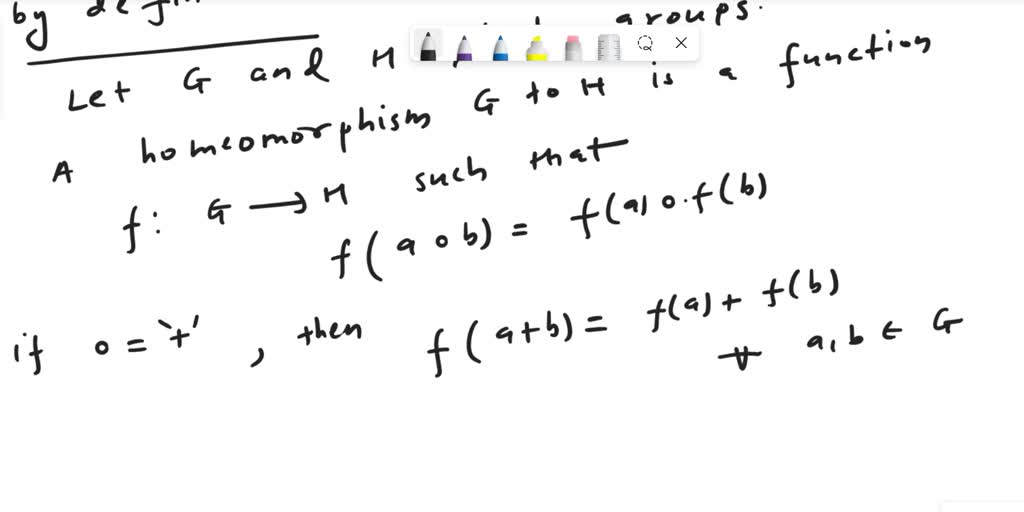 by
Let G and H groups.
A homeomorphism G to H is a function
f: G → H such that
f(a∘b) = f(a)∘.f(b)
if ∘ = '+', then f(a+b) = f(a) + f(b)
∀ a, b ∈ G